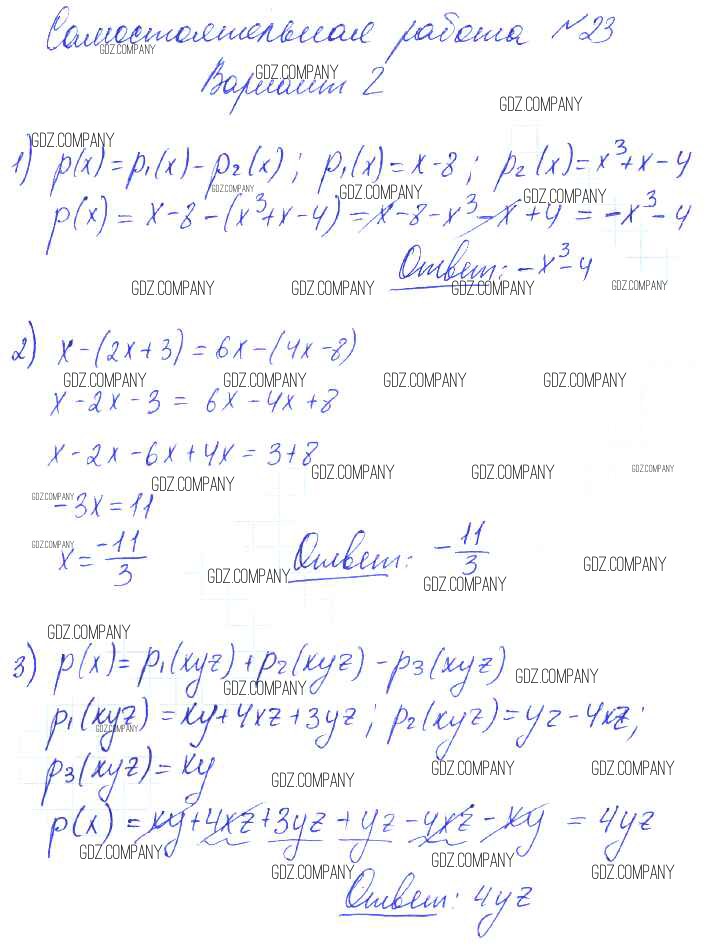 Самостоятельная работа №23
Вариант 2
1) p(x) = p₁(x) - p₂(x); p₁(x) = x-8; p₂(x) = x³+x-4
p(x) = x-8-(x³+x-4) = x-8-x³-x+4 = -x³-4
Ответ: -x³-4
2) x-(2x+3) = 6x-(4x-8)
x-2x-3 = 6x-4x+8
x-2x-6x+4x = 3+8
-3x = 11
x = -11/3 Ответ: -11/3
3) p(x) = p₁(xyz) + p₂(xyz) - p₃(xyz)
p₁(xyz) = xy+4xz+3yz; p₂(xyz) = yz-4xz;
p₃(xyz) = xy
p(x) = xy+4xz+3yz+yz-4xz-xy = 4yz
Ответ: 4yz
GDZ.COMPANY